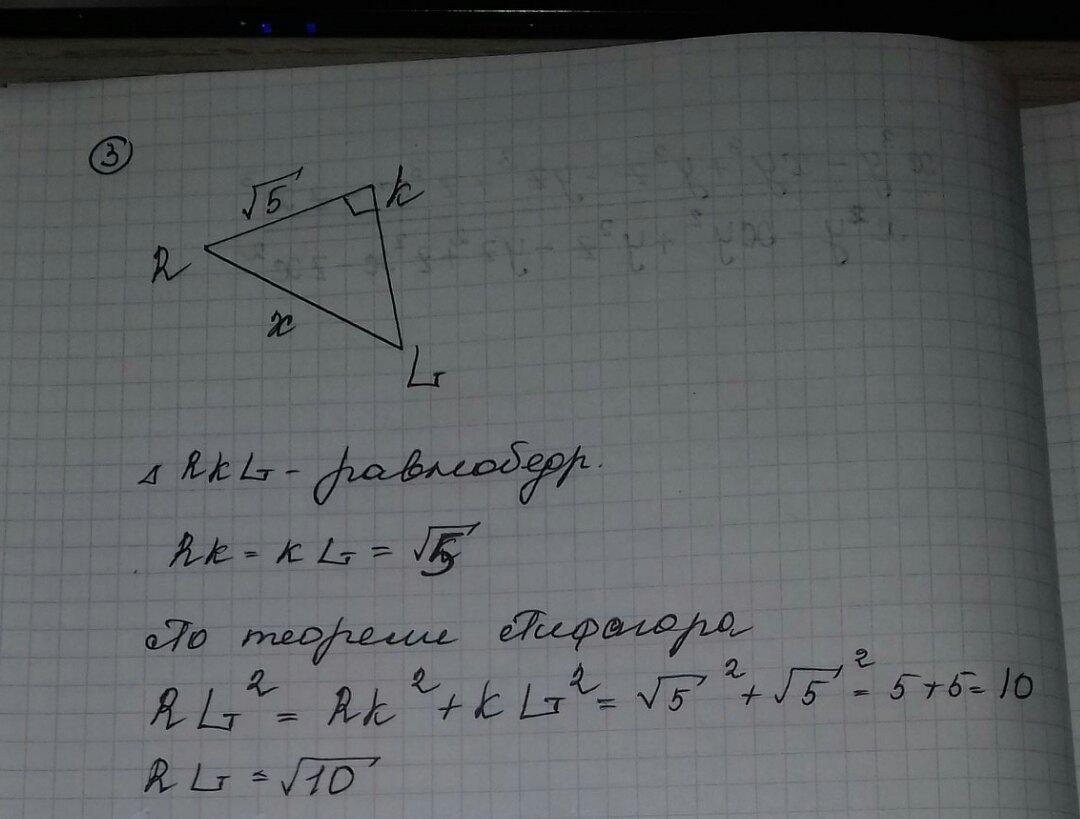 3
√5
K
R
x
L
Δ RKL - равнобедр.
RK = KL = √5
По теореме Пифагора
RL² = RK² + KL² = √5² + √5² = 5+5=10
RL = √10